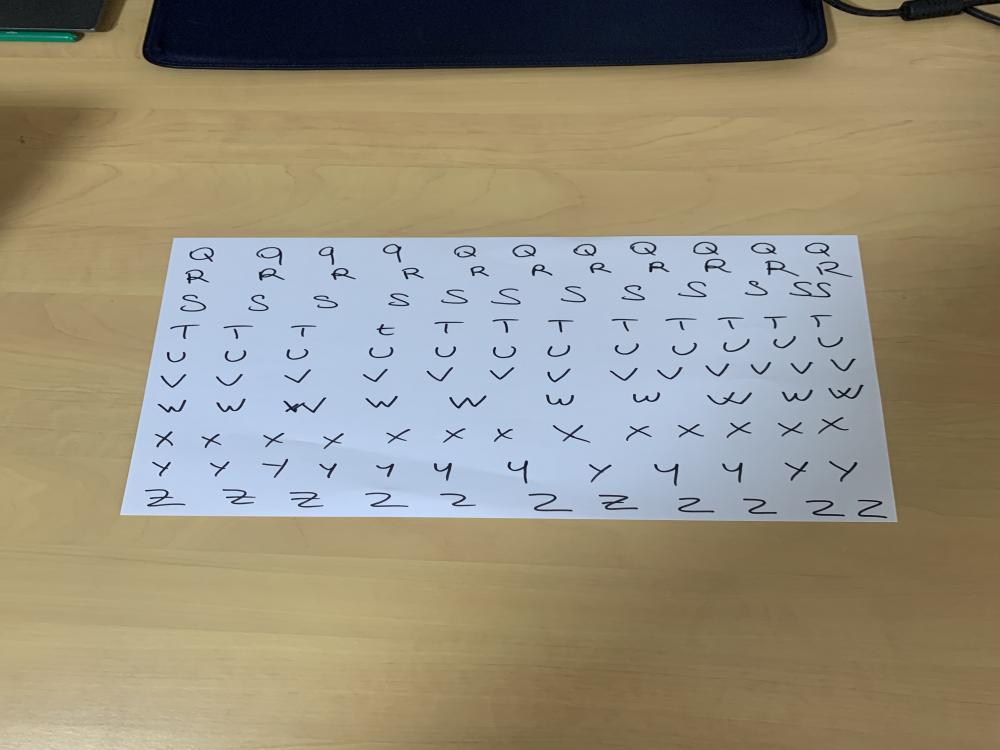 Q q q q Q Q Q Q Q Q Q
R R R R R R R R R R R
S S S S S S S S S S S S S
T T T t T T T T T T T T
U U U U U U U U U U U U
V V V V V V V V V V V V V
W W W W W W W W W W
X X X X X X X X X X X X X
Y Y Y Y Y Y Y Y Y Y Y Y
Z Z Z Z Z Z Z Z Z Z Z